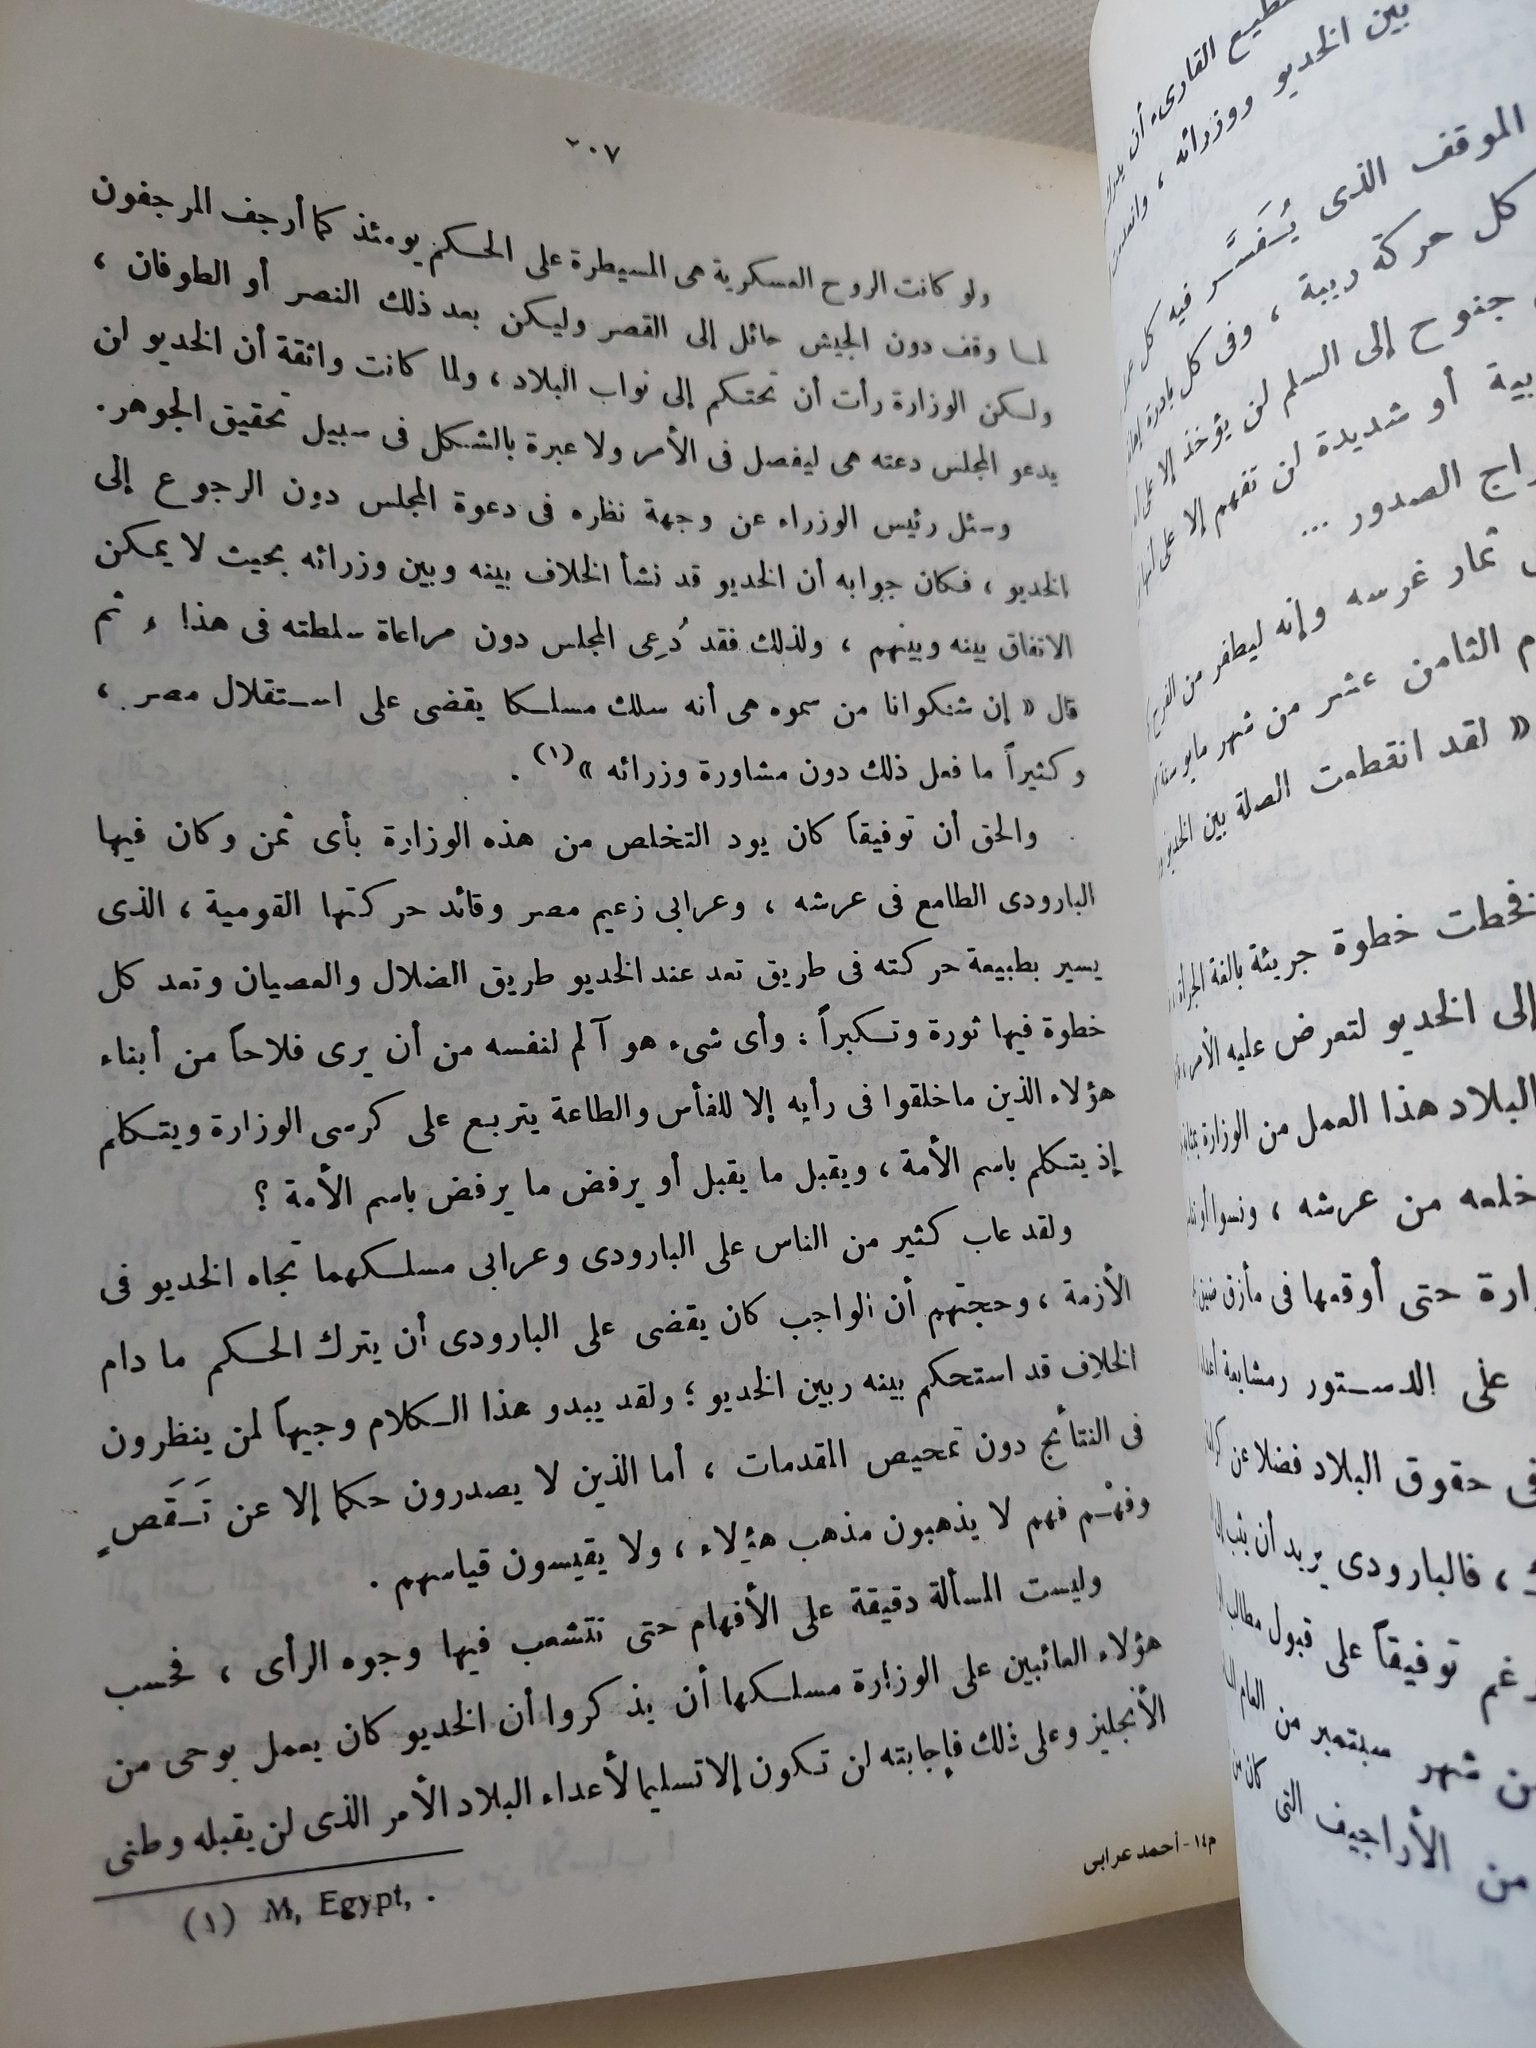 ٢٠٧
ولو كانت الروح العسكرية هى المسيطرة على الحكم يومئذ كما أرجف المرجفون
لما وقف دون الجيش حائل إلى القصر وليكن بعد ذلك النصر أو الطوفان ،
ولكن الوزارة رأت أن تحتكم إلى نواب البلاد ، ولما كانت واثقة أن الخديو لن
يدعو المجلس دعته هى ليفصل فى الأمر ولا عبرة بالشكل فى سبيل تحقيق الجوهر .
وسئل رئيس الوزراء عن وجهة نظره فى دعوة المجلس دون الرجوع إلى
الخديو ، فكان جوابه أن الخديو قد نشأ الخلاف بينه وبين وزرائه بحيث لا يمكن
الاتفاق بينه وبينهم ، ولذلك فقد دُعِى المجلس دون مراعاة سلطته فى هذا ، ثم
قال « إن شكوانا من سموه هى أنه سلك مسلكا يقضى على استقلال مصر ،
وكثيراً ما فعل ذلك دون مشاورة وزرائه » (١) .
والحق أن توفيقاً كان يود التخلص من هذه الوزارة بأى ثمن وكان فيها
البارودى الطامع فى عرشه ، وعرابى زعيم مصر وقائد حركتها القومية ، الذى
يسير بطبيعة حركته فى طريق تعد عند الخديو طريق الضلال والعصيان وتعد كل
خطوة فيها ثورة وتكبراً : وأى شىء هو آلم لنفسه من أن يرى فلاحاً من أبناء
هؤلاء الذين ماخلقوا فى رأيه إلا للفأس والطاعة يتربع على كرسى الوزارة ويتكلم
إذ يتكلم باسم الأمة ، ويقبل ما يقبل أو يرفض ما يرفض باسم الأمة ؟
ولقد عاب كثير من الناس على البارودى وعرابى مسلكهما تجاه الخديو فى
الأزمة ، وحجتهم أن الواجب كان يقضى على البارودى أن يترك الحكم ما دام
الخلاف قد استحكم بينه وبين الخديو ؛ ولقد يبدو هذا الكلام وجيهاً لمن ينظرون
فى النتائج دون تمحيص المقدمات ، أما الذين لا يصدرون حكما إلا عن تَقَصٍ
وفهْم فهم لا يذهبون مذهب هؤلاء ، ولا يقيسون قياسهم .
وليست المسألة دقيقة على الأفهام حتى تتشعب فيها وجوه الرأى ، فحسب
هؤلاء العائبين على الوزارة مسلكها أن يذكروا أن الخديو كان يعمل بوحى من
الأنجليز وعلى ذلك فإجابته لن تكون إلا تسليما لأعداء البلاد الأمر الذى لن يقبله وطنى
(١) M, Egypt, .
م١٤ - أحمد عرابى
القارىء أن
بين الخديو ووزرائه ،
الموقف الذى يُفَسَّر فيه كل
كل حركة ريبة ، وفى كل بادرة
جنوح إلى السلم لن يؤخذ إلا على
أو شديدة لن تفهم إلا على
الصدور ...
ثمار غرسه وإنه ليطفر من الفرح
الثامن عشر من شهر مايو
« لقد انقطعت الصلة بين الخديو
خطوة جريئة بالغة الجرأة
إلى الخديو لتعرض عليه الأمر ،
البلاد هذا العمل من الوزارة
خلعه من عرشه ، ونسوا أو
حتى أوقعها فى مأزق
على الدستور ومشايعة
حقوق البلاد فضلا عن
، فالبارودى يريد أن يثب
توفيقاً على قبول مطالب
شهر سبتمبر من العام
من الأراجيف التى كان